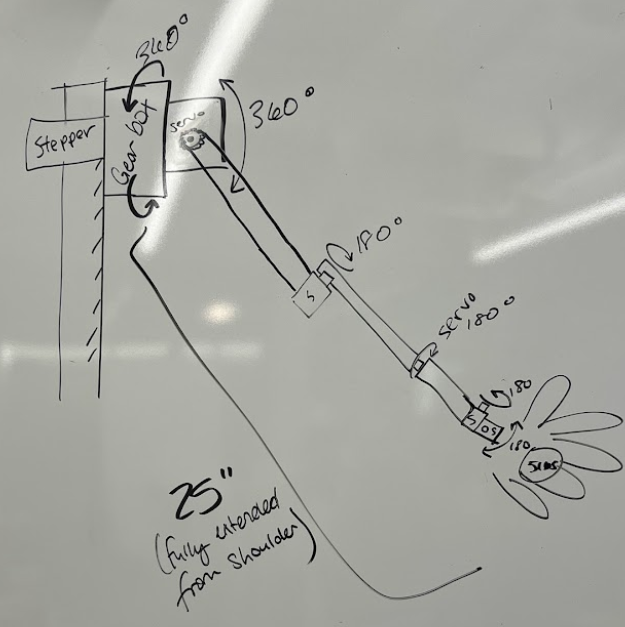 360°
Stepper
Gear box
servo
360°
180°
S
servo
180°
180
S
180
25"
(fully extended
from shoulder)